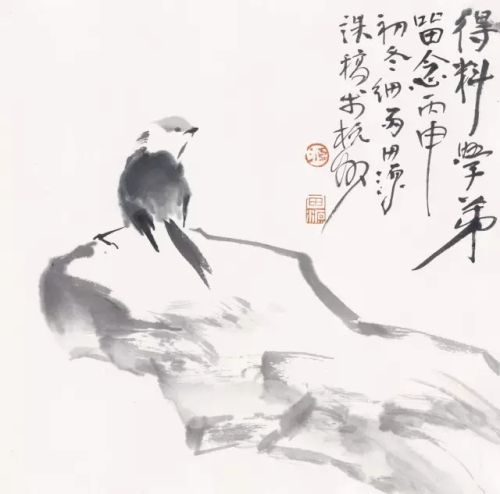 得料學弟
留念丙申
初冬细雨田源
课稿於杭州
田源